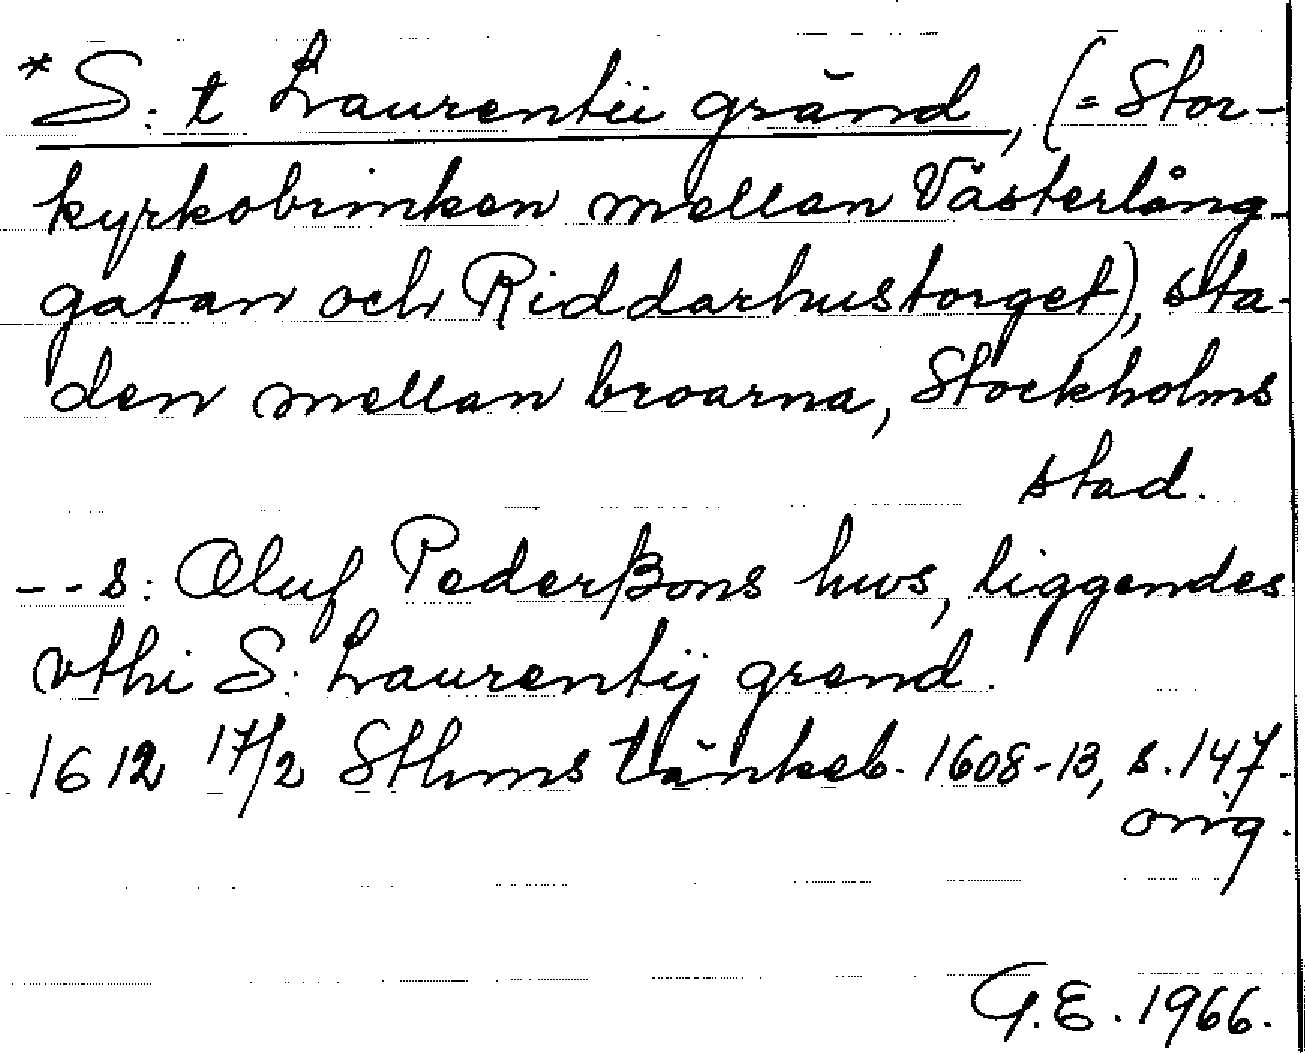 *S:t Laurentii gränd, (= Stor-
kyrkobrinken mellan Västerlång-
gatan och Riddarhustorget), sta-
den mellan broarna, Stockholms
stad.
-- s: Oluf Pederßons hws, liggendes
vthi S: Laurentij grend.
1612 17/2 Sthms tänkeb. 1608-13, s. 147.
orig.
G.E. 1966.